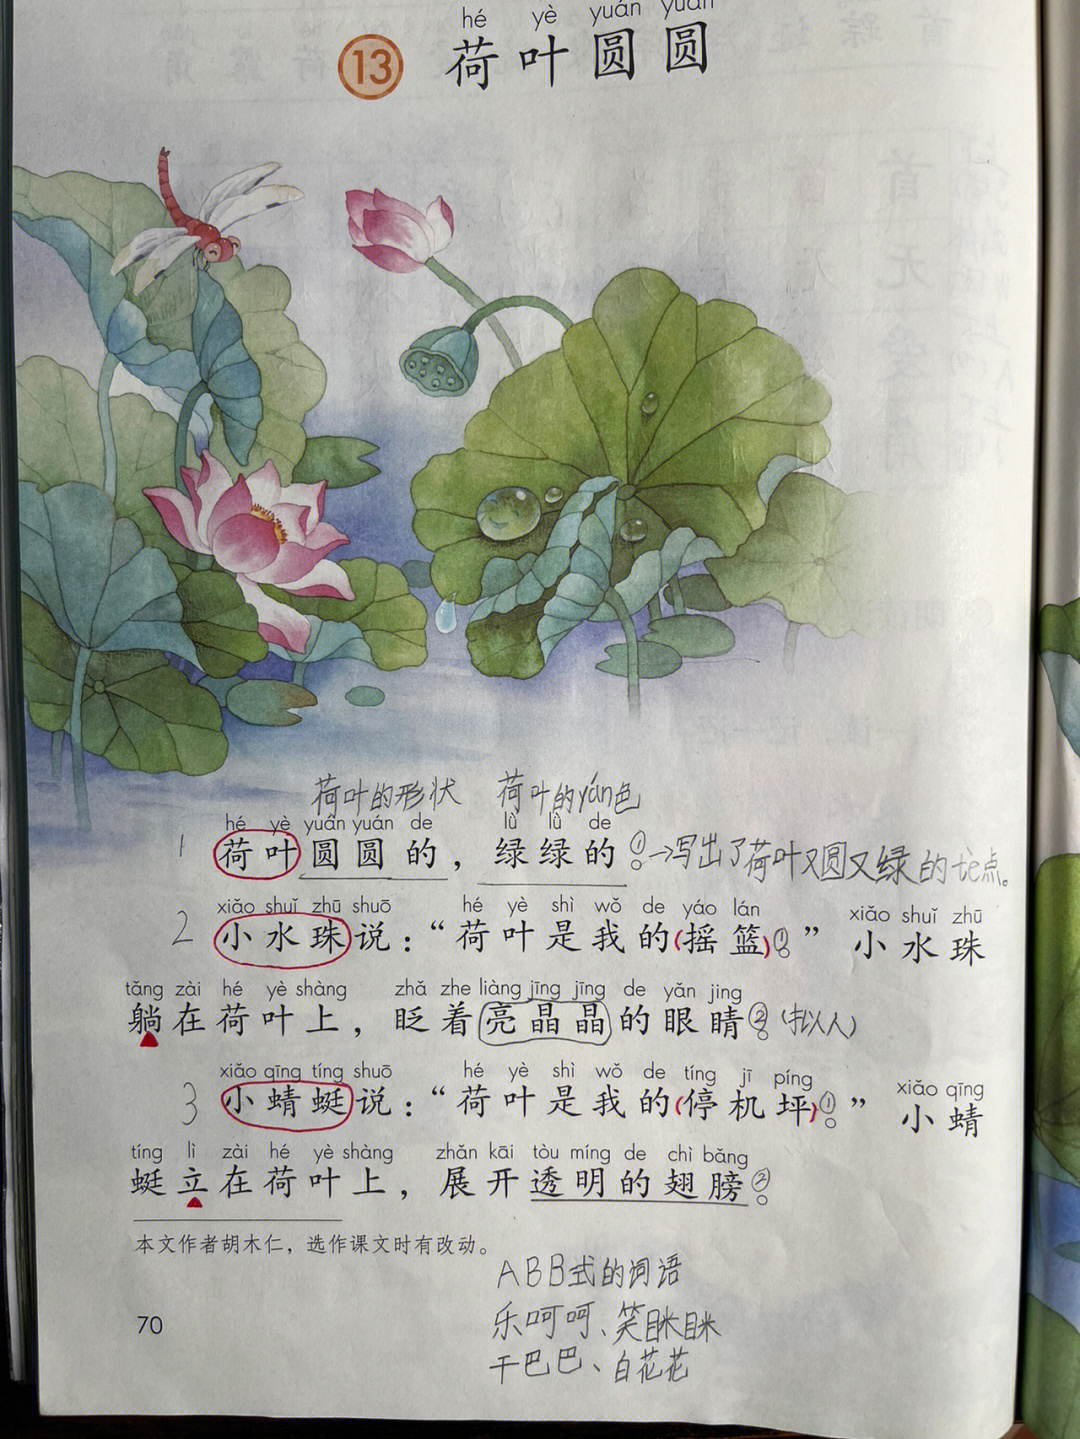 hé yè yuán yuán
13 荷叶圆圆
荷叶的形状 荷叶的yán色
hé yè yuán yuán de lǜ lǜ de
1 荷叶圆圆的，绿绿的。①→写出了荷叶又圆又绿的tè点。
xiǎo shuǐ zhū shuō hé yè shì wǒ de yáo lán xiǎo shuǐ zhū
2 小水珠说：“荷叶是我的(摇篮)。①” 小水珠
tǎng zài hé yè shàng zhǎ zhe liàng jīng jīng de yǎn jing
躺在荷叶上，眨着亮晶晶的眼睛。②(拟人)
xiǎo qīng tíng shuō hé yè shì wǒ de tíng jī píng xiǎo qīng
3 小蜻蜓说：“荷叶是我的(停机坪)。①” 小蜻
tíng lì zài hé yè shàng zhǎn kāi tòu míng de chì bǎng
蜓立在荷叶上，展开透明的翅膀。②
本文作者胡木仁，选作课文时有改动。
ABB式的词语
乐呵呵、笑眯眯
干巴巴、白花花
70